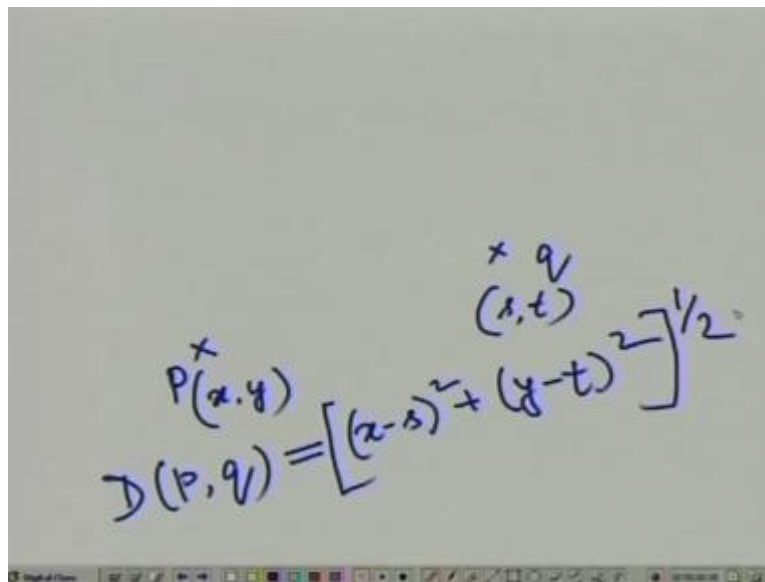 × q
(s,t)
×
P(x,y)
D(p,q) = [(x-s)² + (y-t)²]^1/2